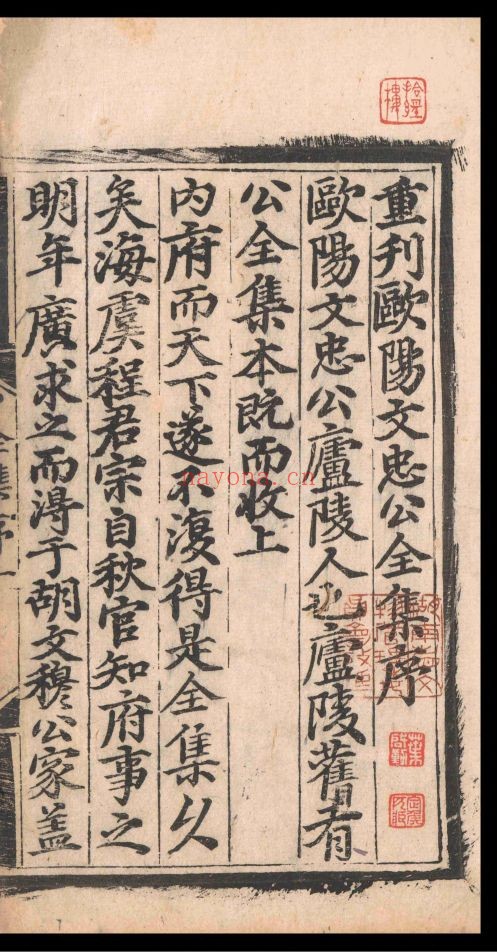 重刊歐陽文忠公全集序
歐陽文忠公廬陵人也廬陵舊有
公全集本既而收上
内府而天下遂不復得是全集久
矣海虞程君宗自秋官知府事之
明年廣求之而得于胡文穆公家蓋
全集序
nayona.cn